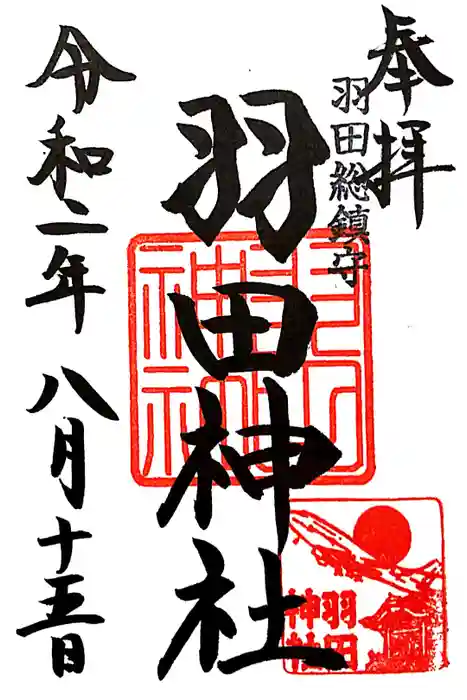 奉拝
羽田総鎮守
羽田神社
羽田
神社
羽田
神社
令和二年 八月十五日